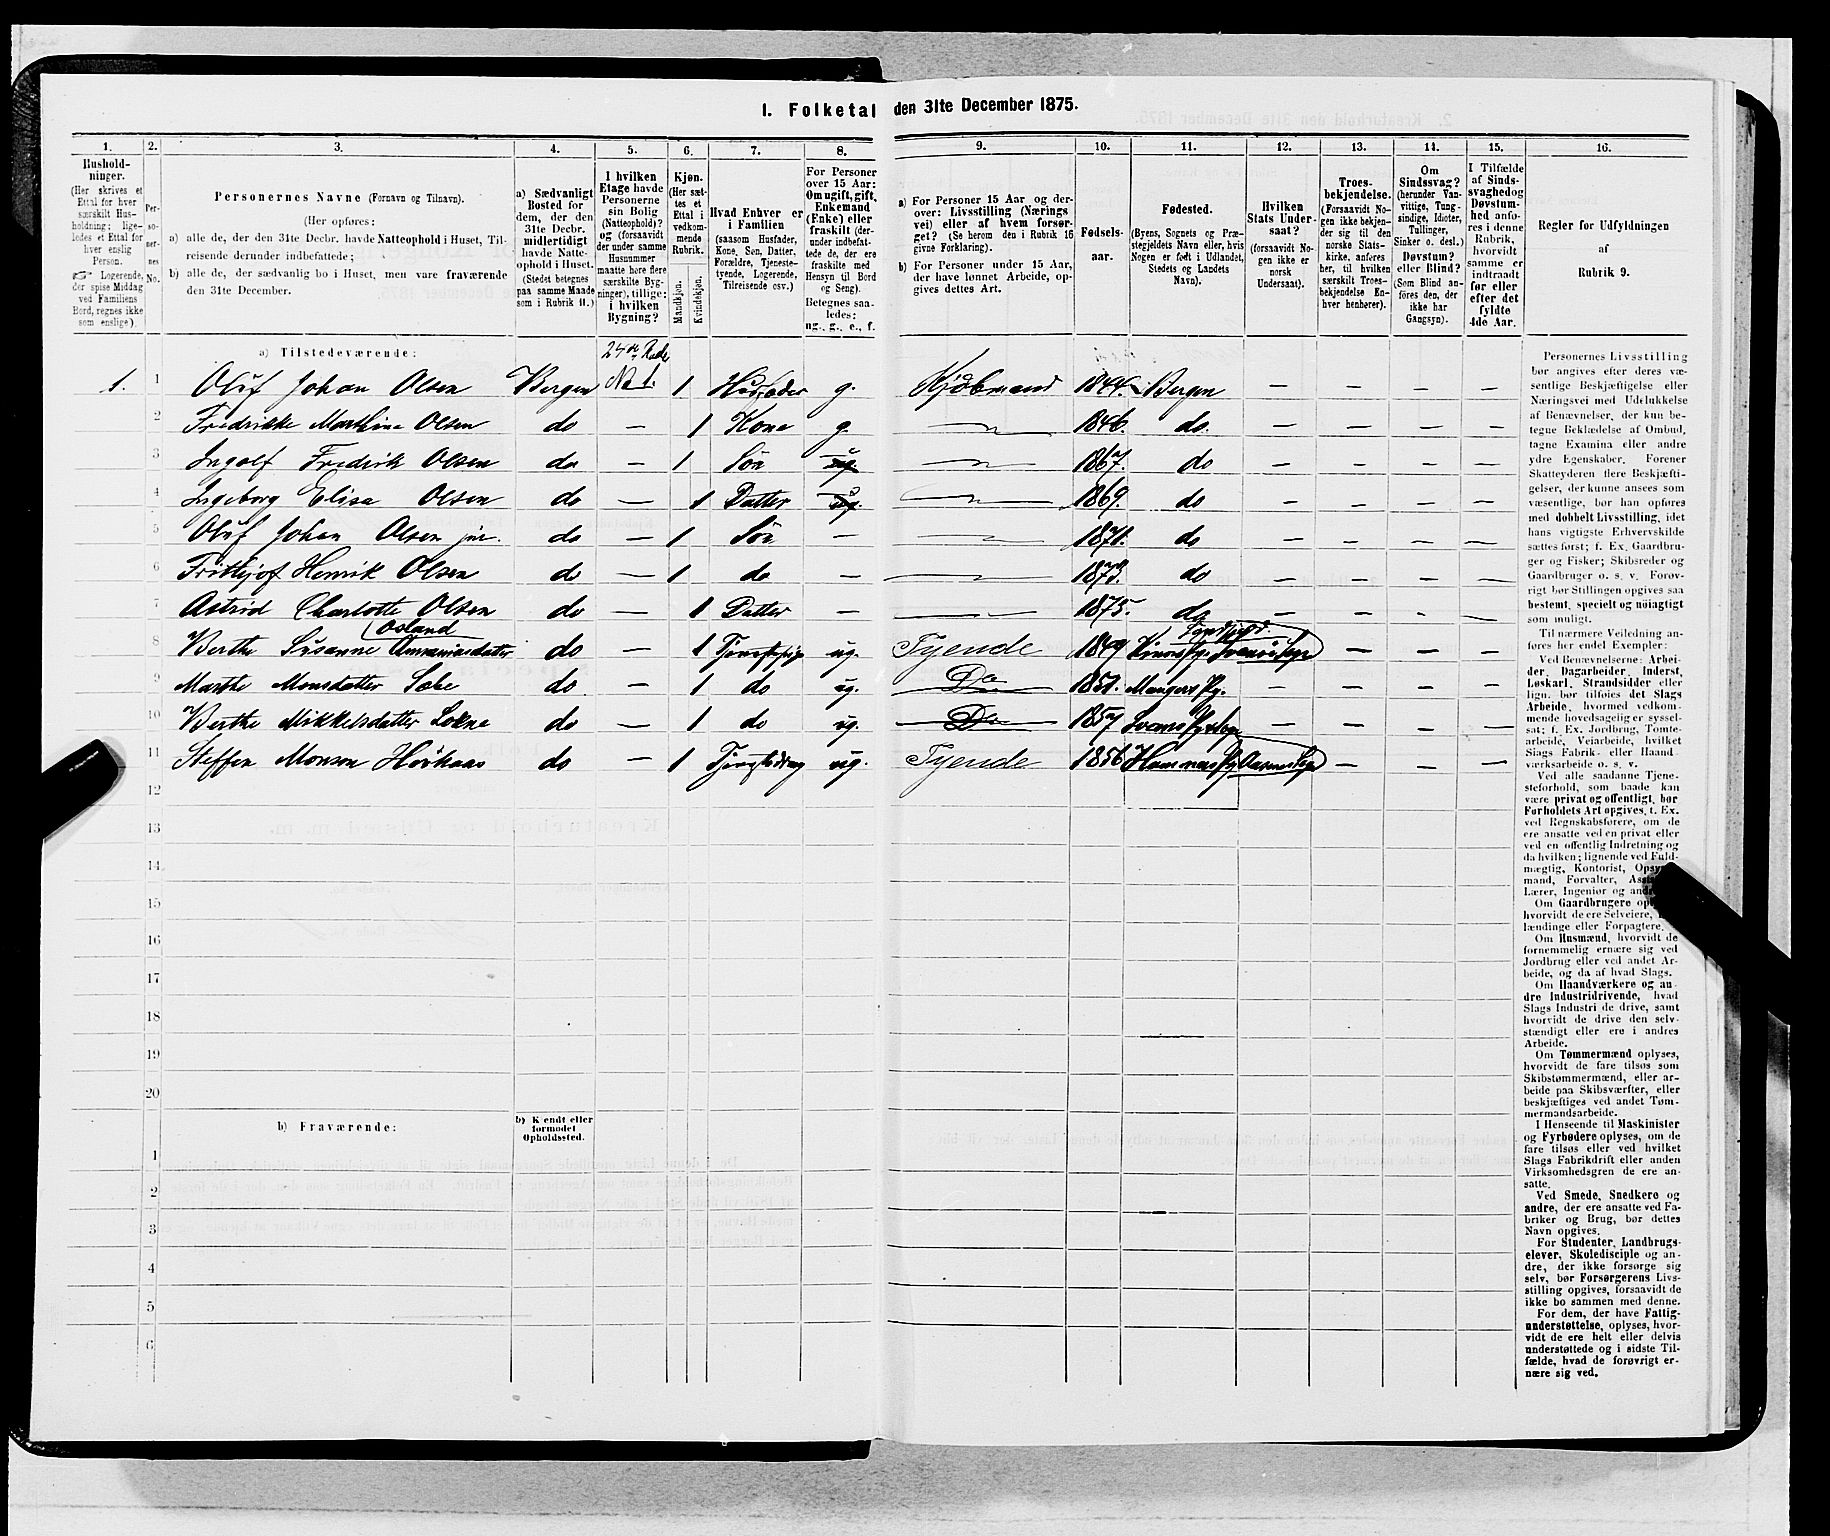 1. Folketal den 31te December 1875.
1. 2. 3. 4. 5. 6. 7. 8. 9. 10. 11. 12. 13. 14. 15. 16.
Hushold-
ninger.
(Her skrives et
Ettal for hver
særskilt Hus-
holdning; lige-
ledes et Ettal for
hver enslig
Person.
☞ Logerende,
der spise Middag
ved Familiens
Bord, regnes ikke
som enslige).
Per-
so-
ner-
nes
No.
Personernes Navne (Fornavn og Tilnavn).
(Her opføres:
a) alle de, der den 31te Decbr. havde Natteophold i Huset, Til-
reisende derunder indbefattede;
b) alle de, der sædvanlig bo i Huset, men vare fraværende
den 31te December.
a) Sædvanligt
Bosted for
dem, der den
31te Decbr.
midlertidigt
havde Natte-
ophold i Huset.
(Stedet betegnes
paa samme Maade
som i Rubrik 11.)
I hvilken
Etage havde
Personerne
sin Bolig
(Natteophold)?
og (forsaavidt
der under samme
Husnummer
maatte høre flere
særskilte Byg-
ninger), tillige:
i hvilken
Bygning?
Kjøn.
(Her sæt-
tes et
Ettal i
vedkom-
mende
Rubrik.
Mandkjøn.
Kvindekjøn.
Hvad Enhver er
i Familien
(saasom Husfader,
Kone, Søn, Datter,
Forældre, Tjeneste-
tyende, Logerende,
Tilreisende osv.)
For Personer
over 15 Aar:
Om ugift, gift,
Enkemand
(Enke) eller
fraskilt (der-
under indbefat-
tede de, der ere
fraskilte med
Hensyn til Bord
og Seng).
Betegnes saa-
ledes:
ug., g., e., f.
a) For Personer 15 Aar og der-
over: Livsstilling (Nærings
vei) eller af hvem forsør-
get? (Se herom den i Rubrik 16
givne Forklaring).
b) For Personer under 15 Aar,
der have lønnet Arbeide, op-
gives dettes Art.
Fødsels-
aar.
Fødested.
(Byens, Sognets og Præ-
stegjeldets Navn eller, hvis
Nogen er født i Udlandet,
Stedets og Landets
Navn).
Hvilken
Stats Under-
saat?
(forsaavidt No-
gen ikke er
norsk
Undersaat).
Troes-
bekjendelse.
(Forsaavidt No-
gen ikke bekjen-
der sig til den
norske Stats-
kirke, anføres
her, til hvilken
særskilt Troes-
bekjendelse En-
hver henhører).
Om
Sindssvag?
(herunder Van-
vittige, Tung-
sindige, Idioter,
Tullinger,
Sinker o. desl.)
Døvstum?
eller Blind?
(Som Blind an-
føres den, der
ikke har
Gangsyn).
I Tilfælde
af Sinds-
svaghed og
Døvstum-
hed anfø-
res i denne
Rubrik,
hvorvidt
samme er
indtraadt
før eller
efter det
fyldte
4de Aar.
Regler for Udfyldningen
af
Rubrik 9.
a) Tilstedeværende:
24de Rode
1. 1 Oluf Johan Olsen Bergen No 1. 1 Husfader g. Kjøbmand 1844. Bergen — — — —
2 Fredrikke Marthine Olsen do — 1 Kone g. — 1846. do. — — — —
3 Ingolf Fredrik Olsen do — 1 Søn ug. — 1867. do — — — —
4 Ingeborg Elisa Olsen do — 1 Datter ug. — 1869. do — — — —
5 Oluf Johan Olsen jun. do — 1 Søn — — 1871. do — — — —
6 Frithjof Henrik Olsen do — 1 do — — 1873. do — — — —
7 Astrid Charlotte Olsen do — 1 Datter — — 1875. do — — — —
Osland
8 Berthe Susanne Ananiasdatter do — 1 Tjenestepige ug. Tyende 1849 Kinns Pg. Svanøe Sogn — — — —
9 Marthe Monsdatter do — 1 do ug. Do 1851. Mangers Pg. — — — —
10 Berthe Mikkelsdatter do — 1 do ug. Do 1857 — — — —
11 Steffen Monson do — 1 Tjenestedreng ug. Tyende 1856 Hammers Pg — — — —
12
13
14
15
16
17
18
19
20
b) Fraværende:
b) Kjendt eller
formodet
Opholdssted.
1
2
3
4
5
6
Personernes Livsstilling
bør angives efter deres væ-
sentlige Beskjæftigelse eller
Næringsvei med Udelukkelse
af Benævnelser, der kun be-
tegne Beklædelse af Ombud,
tagne Examina eller andre
ydre Egenskaber. Forener
Skatteyderen flere Beskjæfti-
gelser, der kunne ansees som
væsentlige, bør han opføres
med dobbelt Livsstilling, idet
hans vigtigste Erhvervskilde
sættes først; f. Ex. Gaardbru-
ger og Fisker; Skibsreder og
Gaardbruger o. s. v. Forøv-
rigt bør Stillingen opgives saa
bestemt, specielt og nøiagtigt
som muligt.
Til nærmere Veiledning an-
føres her endel Exempler:
Ved Benævnelserne: Arbei-
der, Dagarbeider, Inderst,
Løskarl, Strandsidder eller
lign. bør tilføies det Slags
Arbeide, hvormed vedkom-
mende hovedsagelig er syssel-
sat; f. Ex. Jordbrug, Tomte-
arbeide, Veiarbeide, hvilket
Slags Fabrik- eller Haand-
værksarbeide o. s. v.
Ved alle saadanne Tjene-
steforhold, som baade kan
være privat og offentligt, bør
Forholdets Art opgives, t. Ex.
ved Regnskabsførere, om de
ere ansatte ved en privat eller
ved en offentlig Indretning og
da hvilken; lignende ved Fuld-
mægtig, Kontorist,
mand, Forvalter,
Lærer, Ingeniør og
Om Gaardbrugere
hvorvidt de ere Selveiere,
lændinge eller Forpagtere.
Om Husmænd, hvorvidt de
fornemmelig ernære sig ved
Jordbrug eller ved andet Ar-
beide, og da af hvad Slags.
Om Haandværkere og an-
dre Industridrivende, hvad
Slags Industri de drive, samt
hvorvidt de drive den selv-
stændigt eller ere i andres
Arbeide.
Om Tømmermænd oplyses,
hvorvidt de fare tilsøs som
Skibstømmermænd, eller ar-
beide paa Skibsværfter, eller
beskjæftiges ved andet Tøm-
mermandsarbeide.
I Henseende til Maskinister
og Fyrbødere oplyses, om de
fare tilsøs eller ved hvilket
Slags Fabrikdrift eller anden
Virksomhedsgren de ere an-
satte.
Ved Smede, Snedkere og
andre, der ere ansatte ved Fa-
briker og Brug, bør dettes
Navn opgives.
For Studenter, Landbrugs-
elever, Skoledisciple og an-
dre, der ikke forsørge sig
selv, bør Forsørgerens Livs-
stilling opgives, forsaavidt de
ikke bo sammen med denne.
For dem, der have Fattig-
understøttelse, oplyses, hvor-
vidt de ere helt eller delvis
understøttede og i sidste Til-
fælde, hvad de forøvrigt er-
nære sig ved.